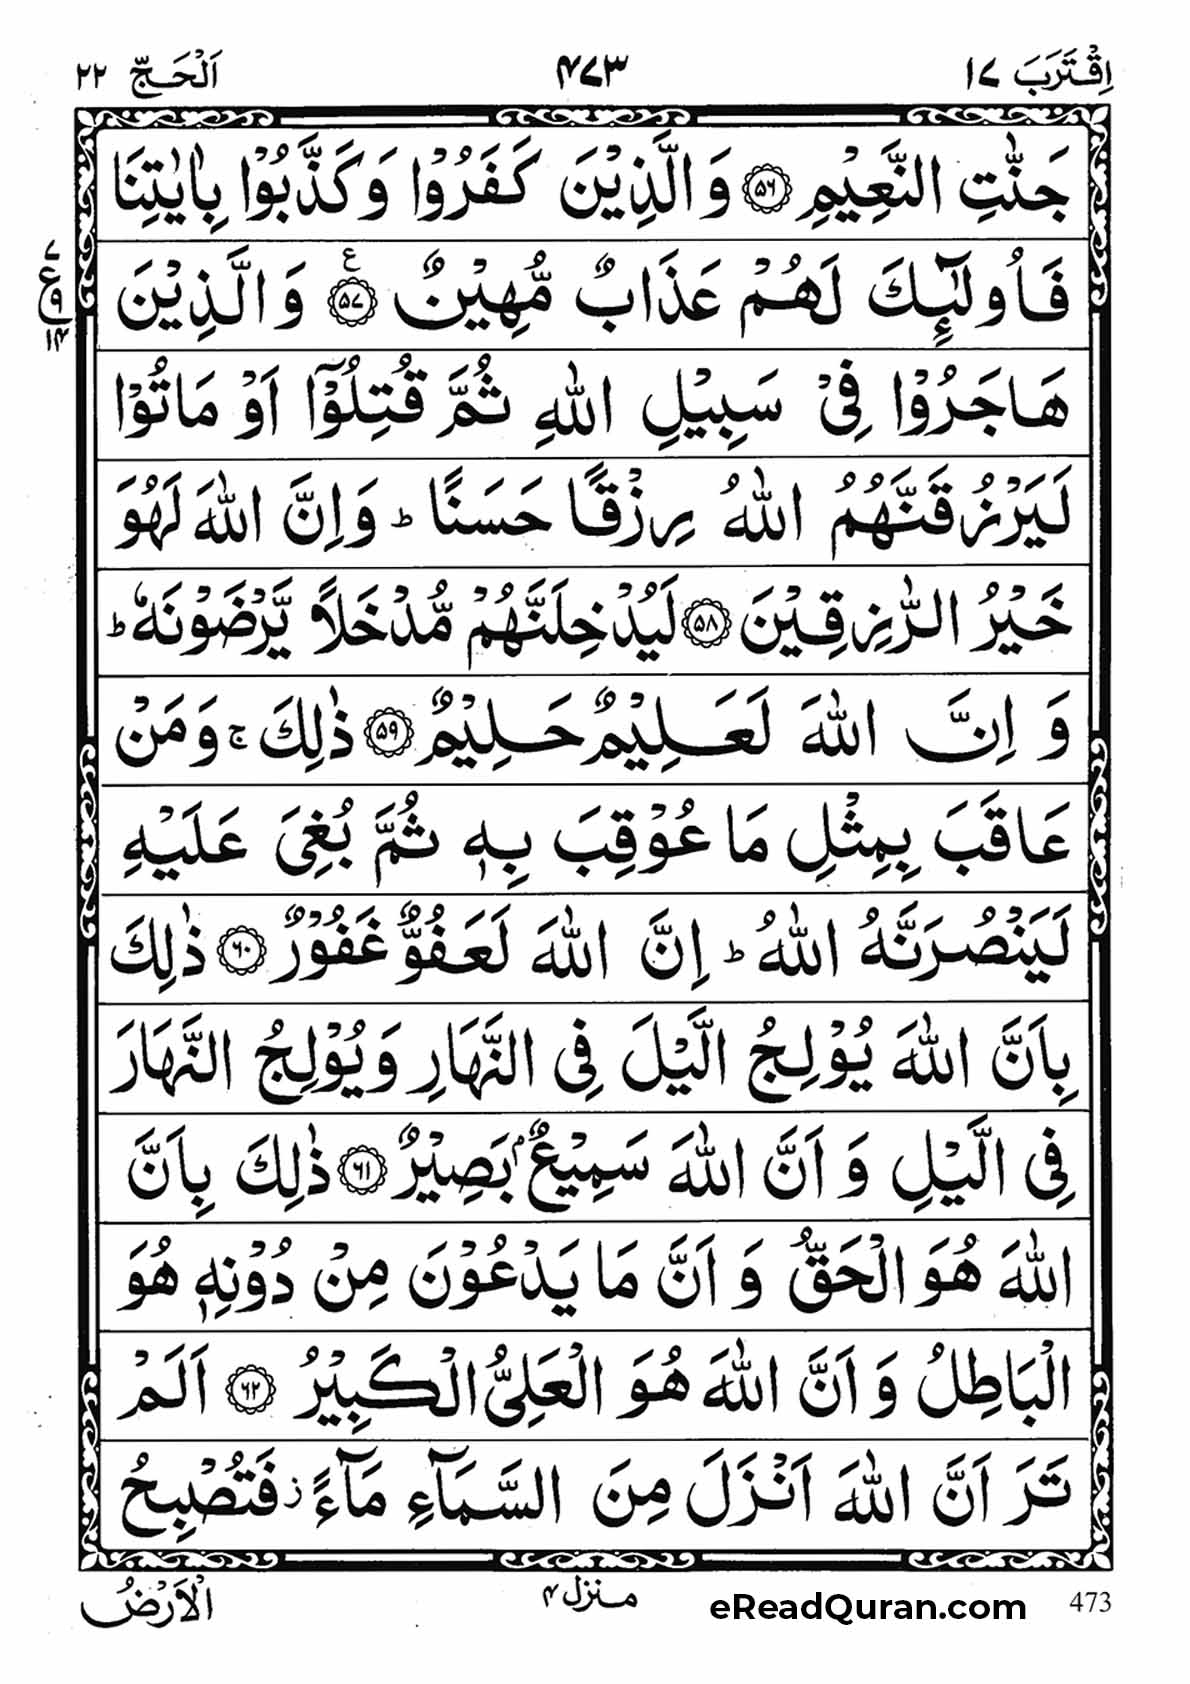 اِقْتَرَبَ ١٧ ٤٧٣ اَلْحَجّ ٢٢
جَنّٰتِ النَّعِیْمِ ﴿۵۶﴾ وَالَّذِیْنَ كَفَرُوْا وَكَذَّبُوْا بِاٰیٰتِنَا
فَاُولٰٓئِكَ لَهُمْ عَذَابٌ مُّهِیْنٌ ﴿۵۷﴾ ع وَالَّذِیْنَ
٧ ع ٩ ١٤
هَاجَرُوْا فِیْ سَبِیْلِ اللّٰهِ ثُمَّ قُتِلُوْۤا اَوْ مَاتُوْا
لَیَرْزُقَنَّهُمُ اللّٰهُ رِزْقًا حَسَنًا ؕ وَاِنَّ اللّٰهَ لَهُوَ
خَیْرُ الرّٰزِقِیْنَ ﴿۵۸﴾ لَیُدْخِلَنَّهُمْ مُّدْخَلًا یَّرْضَوْنَهٗ ؕ
وَ اِنَّ اللّٰهَ لَعَلِیْمٌ حَلِیْمٌ ﴿۵۹﴾ ذٰلِكَ ۚ وَمَنْ
عَاقَبَ بِمِثْلِ مَا عُوْقِبَ بِهٖ ثُمَّ بُغِیَ عَلَیْهِ
لَیَنْصُرَنَّهُ اللّٰهُ ؕ اِنَّ اللّٰهَ لَعَفُوٌّ غَفُوْرٌ ﴿۶۰﴾ ذٰلِكَ
بِاَنَّ اللّٰهَ یُوْلِجُ الَّیْلَ فِی النَّهَارِ وَیُوْلِجُ النَّهَارَ
فِی الَّیْلِ وَ اَنَّ اللّٰهَ سَمِیْعٌۢ بَصِیْرٌ ﴿۶۱﴾ ذٰلِكَ بِاَنَّ
اللّٰهَ هُوَ الْحَقُّ وَ اَنَّ مَا یَدْعُوْنَ مِنْ دُوْنِهٖ هُوَ
الْبَاطِلُ وَ اَنَّ اللّٰهَ هُوَ الْعَلِیُّ الْكَبِیْرُ ﴿۶۲﴾ اَلَمْ
تَرَ اَنَّ اللّٰهَ اَنْزَلَ مِنَ السَّمَآءِ مَآءً ؗ فَتُصْبِحُ
الْاَرْضُ منزل ۴ eReadQuran.com 473